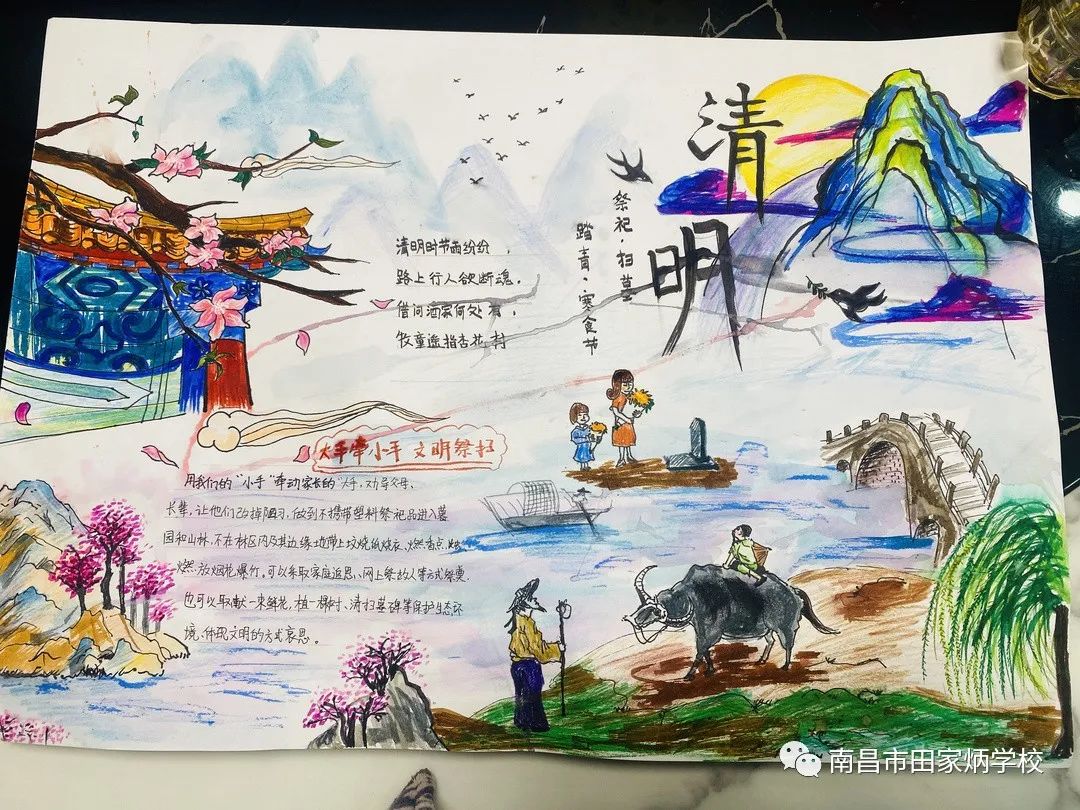 清明
祭祀·扫墓
踏青·寒食节
清明时节雨纷纷,
路上行人欲断魂。
借问酒家何处有,
牧童遥指杏花村
大手牵小手 文明祭扫
用我们的“小手”牵动家长的“大手,劝导父母、
长辈,让他们改掉陋习,做到不携带塑料祭祀品进入墓
园和山林,不在林区内及其边缘地带上坟烧纸烧衣、燃香点烛
燃放烟花爆竹。可以采取家庭追思、网上祭故人等方式祭奠
也可以取献一束鲜花,植一棵树、清扫墓碑等保护生态环
境、体现文明的方式哀思。
南昌市田家炳学校